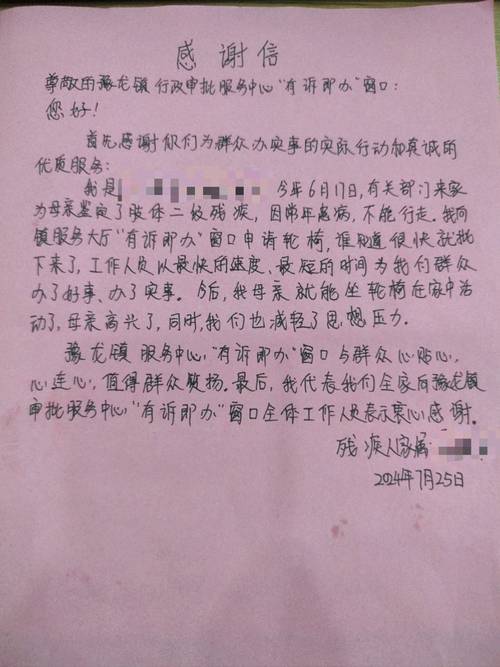 感谢信
尊敬的豫龙镇行政审批服务中心“有诉即办”窗口：
您好！
首先感谢你们为群众办实事的实际行动和真诚的
优质服务：
我是 今年6月17日，有关部门来家
为母亲鉴定了肢体二级残疾，因常年患病，不能行走。我向
镇服务大厅“有诉即办”窗口申请轮椅，谁知道很快就批
下来了，工作人员以最快的速度、最短的时间为我们群众
办了好事、办了实事。今后，我母亲就能坐轮椅在家中活
动了，母亲高兴了，同时，我们也减轻了思想压力。
豫龙镇服务中心“有诉即办”窗口与群众心贴心，
心连心，值得群众赞扬。最后，我代表我们全家向豫龙镇
审批服务中心“有诉即办”窗口全体工作人员表示衷心感谢。
残疾人家属
2024年7月25日